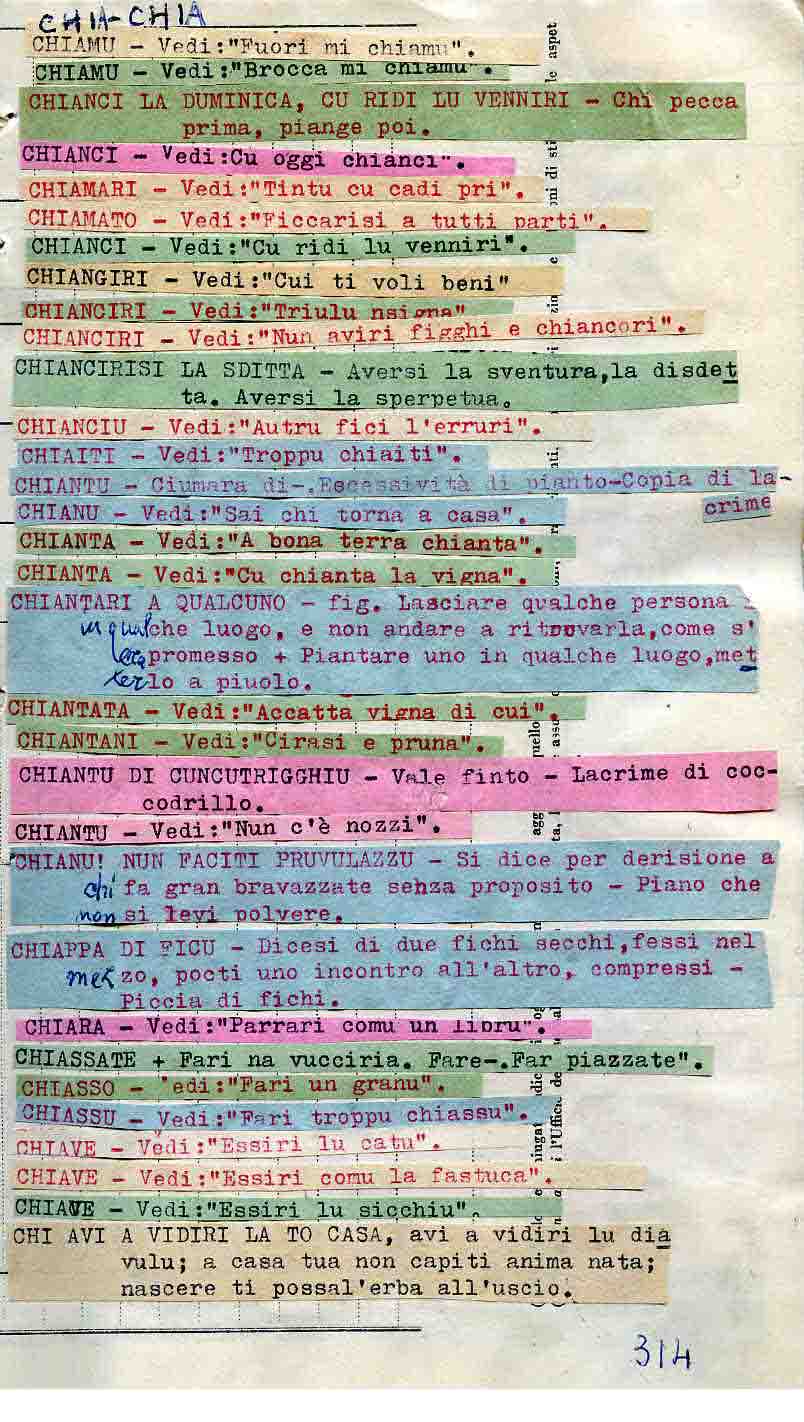 CHIA-CHIA
CHIAMU - Vedi:"Fuori mi chiamu".
CHIAMU - Vedi:"Brocca mi chiamu".
CHIANCI LA DUMINICA, CU RIDI LU VENNIRI - Chi pecca
prima, piange poi.
CHIANCI - Vedi:Cu oggi chianci".
CHIAMARI - Vedi:"Tintu cu cadi pri".
CHIAMATO - Vedi:"Ficcarisi a tutti parti".
CHIANCI - Vedi:"Cu ridi lu venniri".
CHIANGIRI - Vedi:"Cui ti voli beni"
CHIANCIRI - Vedi:"Triulu nsigna"
CHIANCIRI - Vedi:"Nun aviri figghi e chiancori".
CHIANCIRISI LA SDITTA - Aversi la sventura,la disdet
ta. Aversi la sperpetua.
CHIANCIU - Vedi:"Autru fici l'erruri".
CHIAITI - Vedi:"Troppu chiaiti".
CHIANTU - Ciumara di-.Escessività di pianto-Copia di la-
crime
CHIANU - Vedi:"Sai chi torna a casa".
CHIANTA - Vedi:"A bona terra chianta".
CHIANTA - Vedi:"Cu chianta la vigna".
CHIANTARI A QUALCUNO - fig. Lasciare qualche persona
in qualche luogo, e non andare a ritrovarla,come s'
era promesso + Piantare uno in qualche luogo,met
terlo a piuolo.
CHIANTATA - Vedi:"Accatta vigna di cui".
CHIANTANI - Vedi:"Cirasi e pruna".
CHIANTU DI CUNCUTRIGGHIU - Vale finto - Lacrime di coc-
codrillo.
CHIANTU - Vedi:"Nun c'è nozzi".
CHIANU! NUN FACITI PRUVULAZZU - Si dice per derisione a
chi fa gran bravazzate senza proposito - Piano che
non si levi polvere.
CHIAPPA DI FICU - Dicesi di due fichi secchi,fessi nel
mezzo, pocti uno incontro all'altro, compressi -
Piccia di fichi.
CHIARA - Vedi:"Parrari comu un libru".
CHIASSATE + Fari na vucciria. Fare-.Far piazzate".
CHIASSO - edi:"Fari un granu".
CHIASSU - Vedi:"Fari troppu chiassu".
CHIAVE - Vedi:"Essiri lu catu".
CHIAVE - Vedi:"Essiri comu la fastuca".
CHIAVE - Vedi:"Essiri lu sicchiu".
CHI AVI A VIDIRI LA TO CASA, avi a vidiri lu dia
vulu; a casa tua non capiti anima nata;
nascere ti possal'erba all'uscio.
314